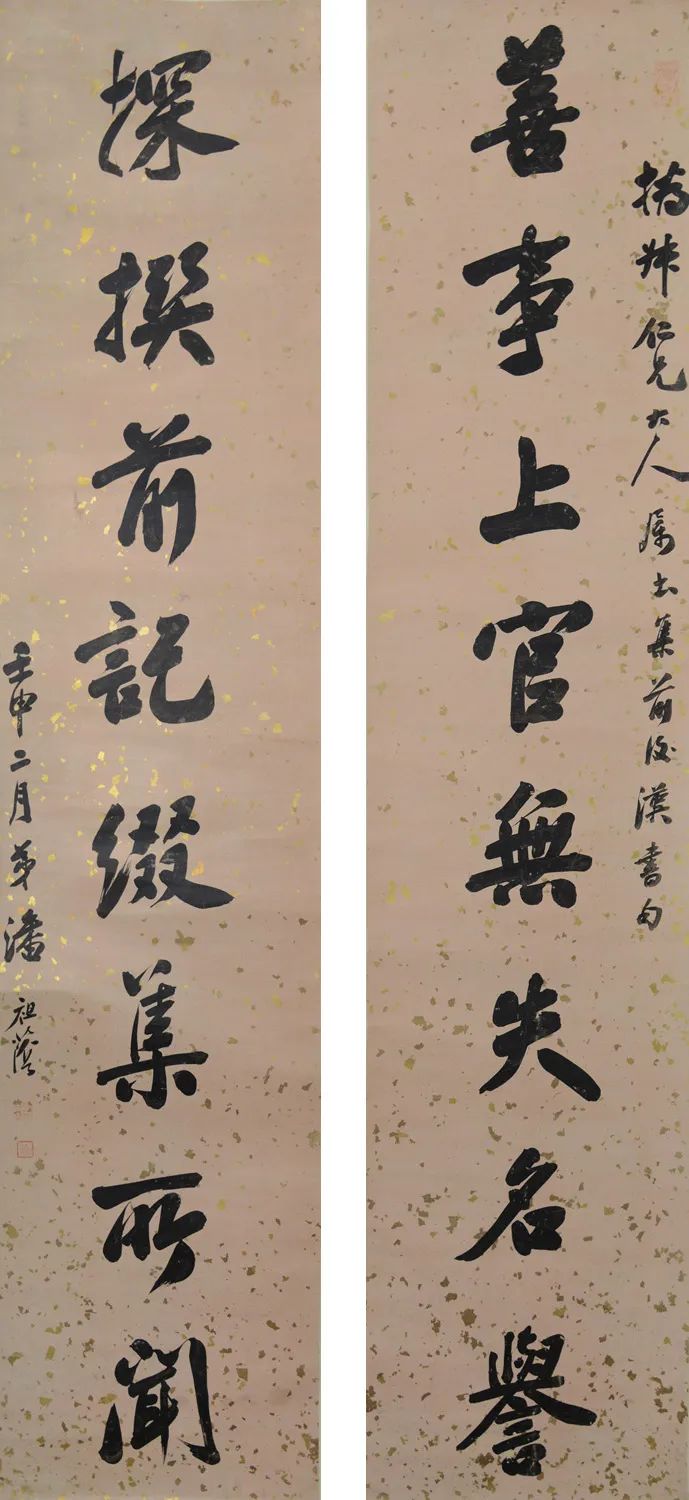 善事上官無失名譽
搢叔仁兄大人屬書集前後漢書句
探撰前記綴集所聞
壬申二月弟潘祖蔭